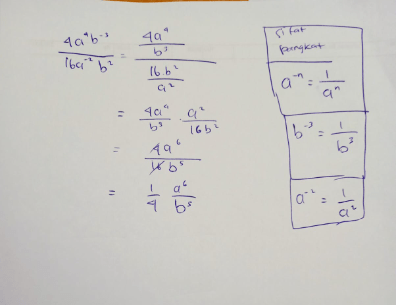 4a⁴b⁻³ / 16a⁻²b² = (4a⁴ / b³) / (16b² / a²)
= 4a⁴ / b³ · a² / 16b²
= 4a⁶ / 16b⁵
= 1/4 a⁶ / b⁵
Sifat
pangkat
a⁻ⁿ = 1 / aⁿ
b⁻³ = 1 / b³
a⁻² = 1 / a²